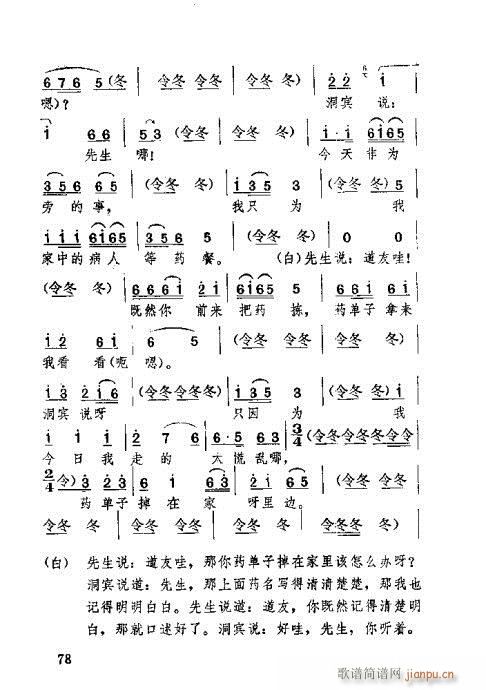 6 7 6 5 (冬 | 令冬 令冬 | 令冬 冬) | 2 2 i |
嗯)? 洞宾 说:
i 6 6 | 5 3 (令冬 | 令冬 冬) | i · i 6 i 6 5 |
先生 哪! 今天 作为
3 5 6 6 5 | (令冬 冬) | i 3 5 3 | (令冬 冬) 5 |
旁的事, 我只 为 我
i i i 6 i 6 5 | 3 5 6 5 | (令冬 冬) | 0 0 |
家中的病人 等药餐。 (白)先生说:道友哇!
(令冬 冬) | 6 6 6 i 2 i | 6 i 6 5 3 | 6 6 i 6 i |
既然你 前来 把药 拣, 药单子 拿来
i 2 6 i | 6 5 | (令冬 冬) | 令冬 冬 |
我看 看(呃 嗯)。
i 3 2 i 6 | (令冬令冬冬) | i 3 5 3 | (令冬 冬) i |
洞宾 说呀 只因 为 我
i i i | 2 7 6 | 6 · 5 6 3 | 3/4 (令冬令冬冬令令 |
今日我 走的 太慌乱哪,
2/4 令) 3 2 3 | 6 i 6 3 | 2 3 3 | (令冬 冬) |
药单子 掉在家 呀里边。
令冬 冬 | 令冬 令冬 | 令冬 冬 | 令冬冬 冬) |
(白) 先生说:道友哇,那你药单子掉在家里该怎么办呀?
洞宾说道:先生,那上面药名写得清清楚楚,那我也
记得明明白白。先生说道:道友,你既然记得清楚明
白,那就口述好了。洞宾说:好哇,先生,你听着。
78
歌谱简谱网
jianpu.cn